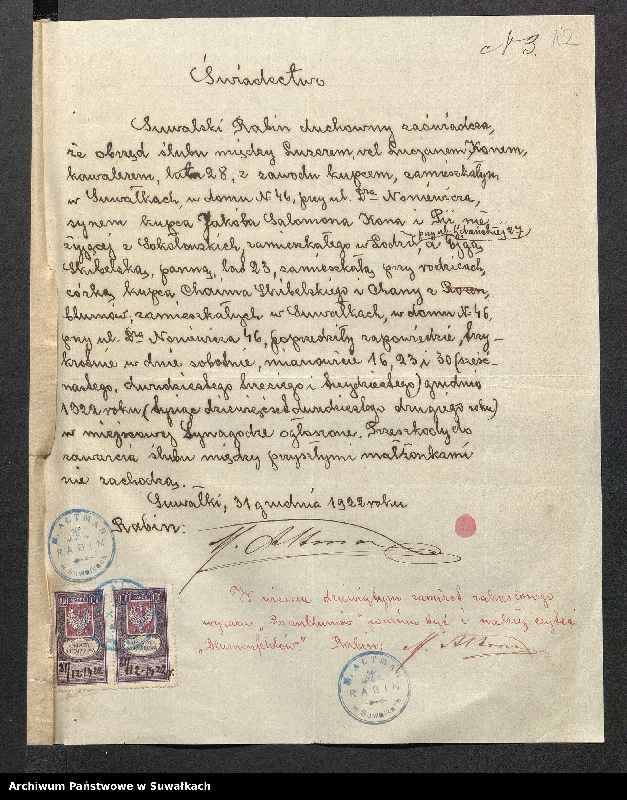 N 3. K2
Świadectwo
Suwalski Rabin duchowny zaświadcza,
że obrzęd ślubu między Luzerem, vel Lucjanem, Konem,
kawalerem, lat 28, z zawodu kupcem, zamieszkałym
w Suwałkach, w domu N 46, przy ul. Dra Noniewicza,
synem kupca Jakóba Salomona Kona i Pii, nie
żyjącej z Sokołowskich, zamieszkałego w Łodzi, przy ul. Gdańskiej 27, a
Skibelską, panną, lat 23, zamieszkałą przy rodzicach,
córką kupca Chaima Skibelskiego i Chany z
Blumów, zamieszkałych w Suwałkach, w domu N 46,
przy ul. Dra Noniewicza 46, poprzedziły zapowiedzie, trzy-
krotnie w dnie sobotnie, mianowicie 16, 23 i 30 (szes-
nastego, dwudziestego trzeciego i trzydziestego) grudnia
1922 roku (tysiąc dziewięćset dwudziestego drugiego roku)
w miejscowej Synagodze ogłoszone. Przeszkody do
zawarcia ślubu między przyszłymi małżonkami
nie zachodzą.
Suwałki, 31 grudnia 1922 roku
Rabin: M. Altman
M. ALTMAN
RABIN
w Suwałkach
W wierszu dziewiątym zamiast zakreślonego
wyrazu powinno być i należy czytać
"Blumenfeldów" Rabin: M. Altman
M. ALTMAN
RABIN
w Suwałkach
31/12 1922
31/12 1922 r.
Archiwum Państwowe w Suwałkach